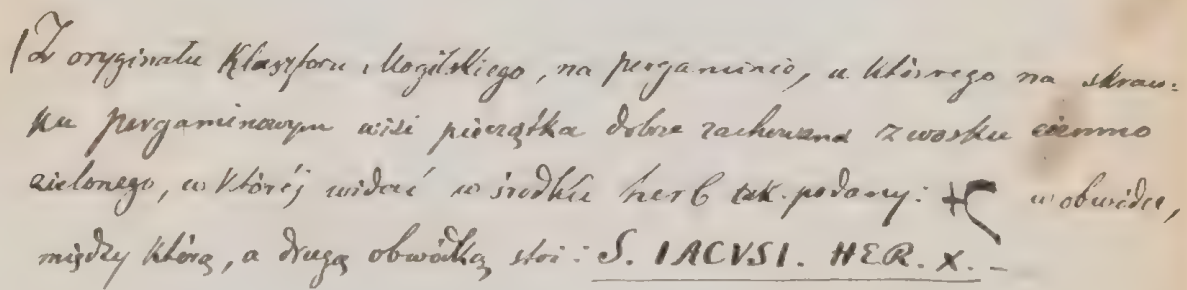 (Z oryginału Klasztoru Mogilskiego, na pergaminie, u którego na skraw-
ku pergaminowym wisi pieczątka dobrze zachowana z wosku ciemno
zielonego, w któréj widać w środku herb tak podany: w obwódce,
między którą, a drugą obwódką stoi: S. IACVSI. HER. X. -